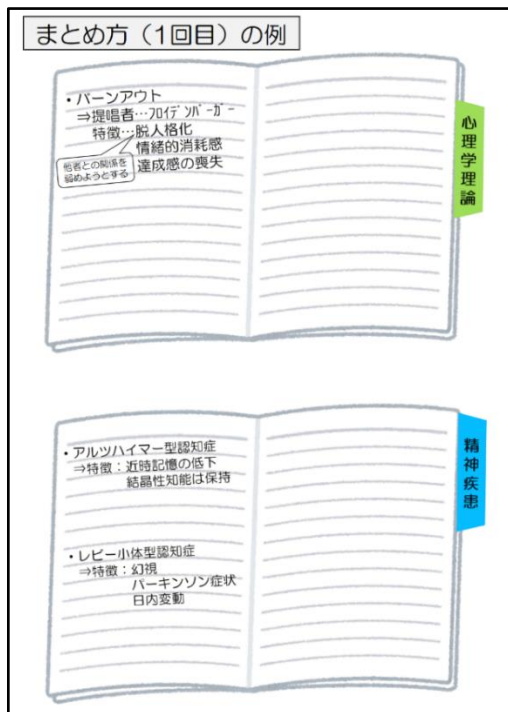 まとめ方（1回目）の例
・バーンアウト
⇒提唱者…ﾌﾛｲﾃﾞﾝﾊﾞｰｶﾞｰ
特徴…脱人格化
情緒的消耗感
達成感の喪失
他者との関係を
弱めようとする
心理学理論
・アルツハイマー型認知症
⇒特徴：近時記憶の低下
結晶性知能は保持
・レビー小体型認知症
⇒特徴：幻視
パーキンソン症状
日内変動
精神疾患